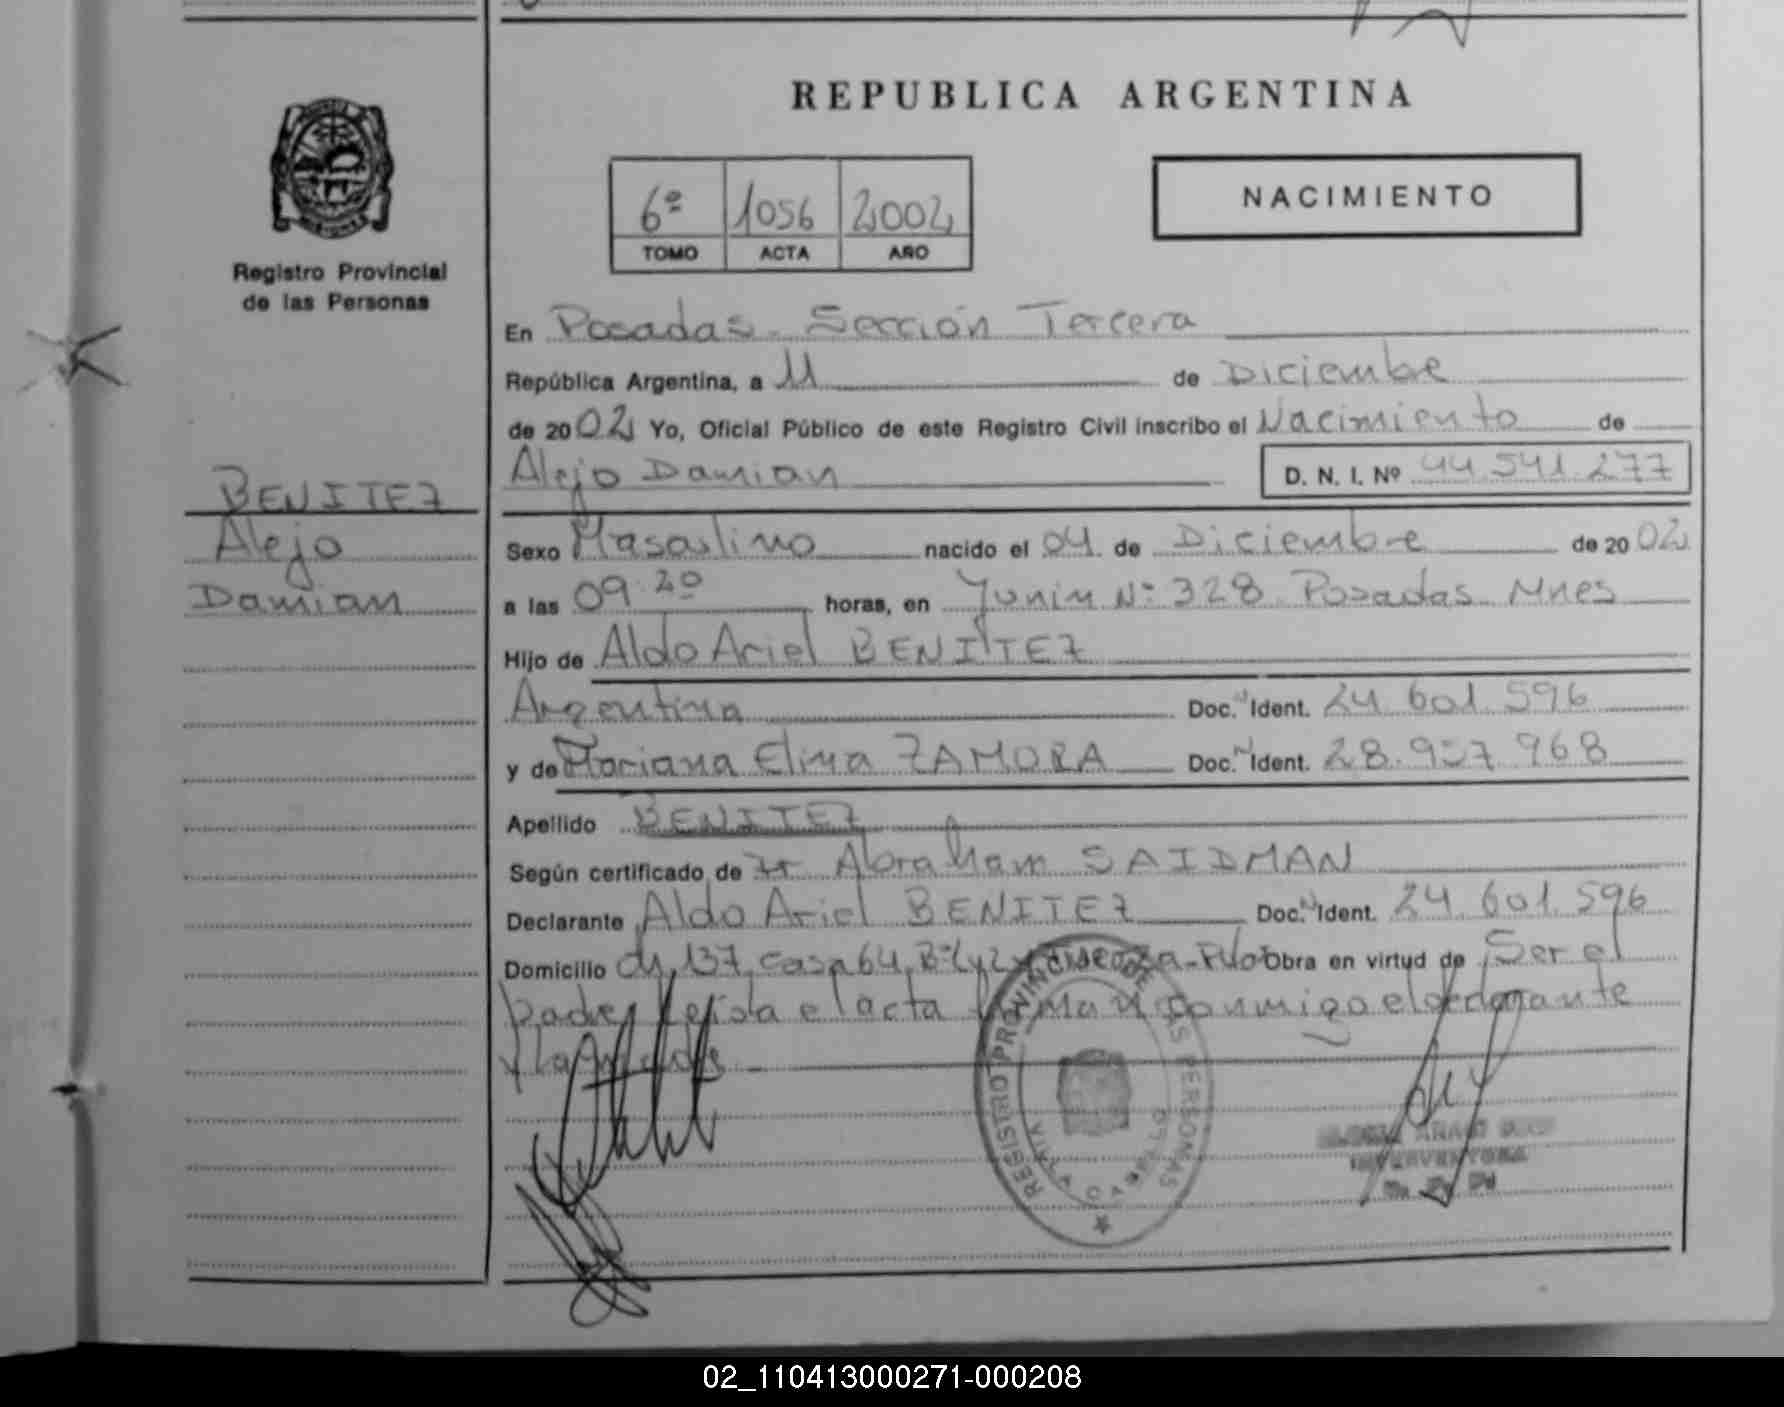 REPUBLICA ARGENTINA
6º 1056 2002
TOMO ACTA AÑO
NACIMIENTO
Registro Provincial
de las Personas
BENITEZ
Alejo
Damian
En Posadas - Sección Tercera
República Argentina, a 11 de Diciembre
de 2002 Yo, Oficial Público de este Registro Civil inscribo el Nacimiento de
Alejo Damian D. N. I. Nº 44.541.277
Sexo Masculino nacido el 04 de Diciembre de 2002
a las 09.20 horas, en Junin Nº 328 Posadas Mnes
Hijo de Aldo Ariel BENITEZ
Argentina Doc. Ident. 24.601.596
y de Mariana Elina ZAMORA Doc. Ident. 28.937.968
Apellido BENITEZ
Según certificado de Abraham SAIDMAN
Declarante Aldo Ariel BENITEZ Doc. Ident. 24.601.596
Domicilio Ch. 137, Casa 64, Bº Obra en virtud de Ser el
padre, el acta conmigo el declarante
y la
REGISTRO PROVINCIAL DE LAS PERSONAS
VILLA CABELLO
INTERVENTORA
02_110413000271-000208